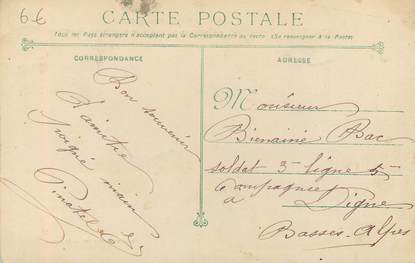 6€
CARTE POSTALE
Tous les Pays étrangers n'acceptent pas la Correspondance au recto. (Se renseigner à la Poste)
CORRESPONDANCE
ADRESSE
Bon souvenir
d'amitié
main
Pinatel
Monsieur
Bienaimé Bac
soldat 3e ligne 5e
Compagnie
a Digne
Basses-Alpes